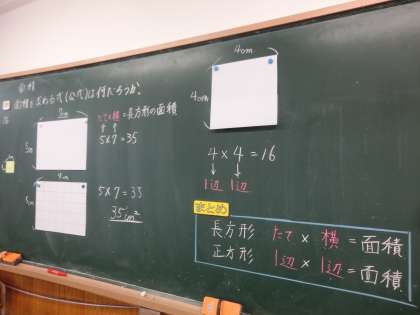 面積
面積を求める式(公式)は何だろうか?
たて×横=長方形の面積
5×7=35
5×7=35
35cm²
4cm
4cm
4×4=16
1辺 1辺
まとめ
長方形 たて×横=面積
正方形 1辺×1辺=面積